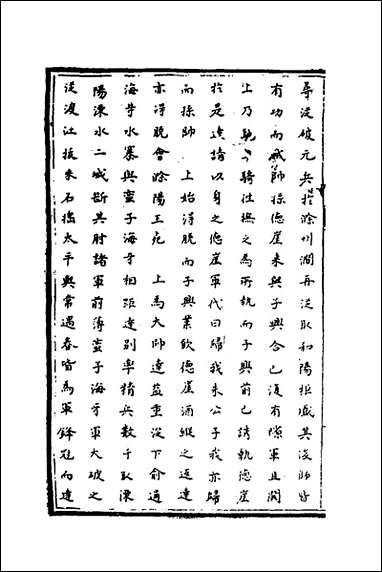 尋從破元兵於滁州澗再從取和陽拒戰其後師皆
有功而戒帥孫德崖來與子興合已復有隙軍且鬨
上乃馳騎往撫之為所執而子興前已誘執德崖
於是達請以身之德崖軍代曰歸我朱公子我亦歸
而孫帥 上始得脫而子興業飲德崖酒縱之返達
亦得脫會滁陽王死 上為大帥達益重從下俞通
海等水寨與蠻子海牙相距達別率精兵數千趾溧
陽溧水二城斷其肘諸軍前薄蠻子海牙軍大破之
從渡江拔采石擣太平與常遇春皆為軍鋒冠而達